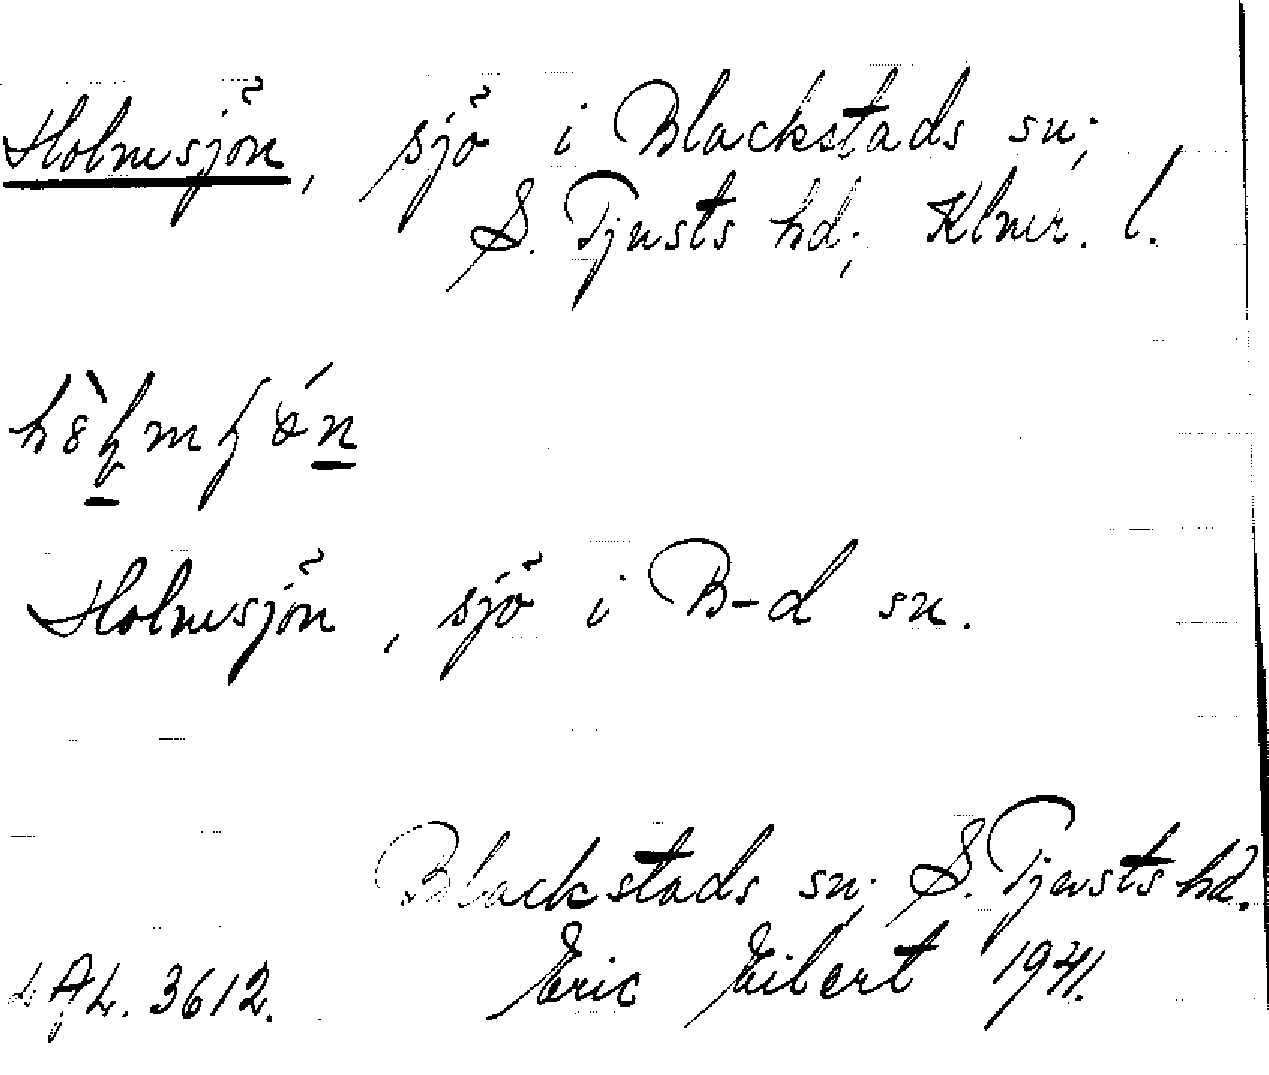 Holmsjön, sjö i Blackstads sn;
S. Tjusts hd; Klmr. l.
Holmsjön, sjö i B-d sn.
Blackstads sn; S. Tjusts hd.
3612. Eric Eilert 1941.